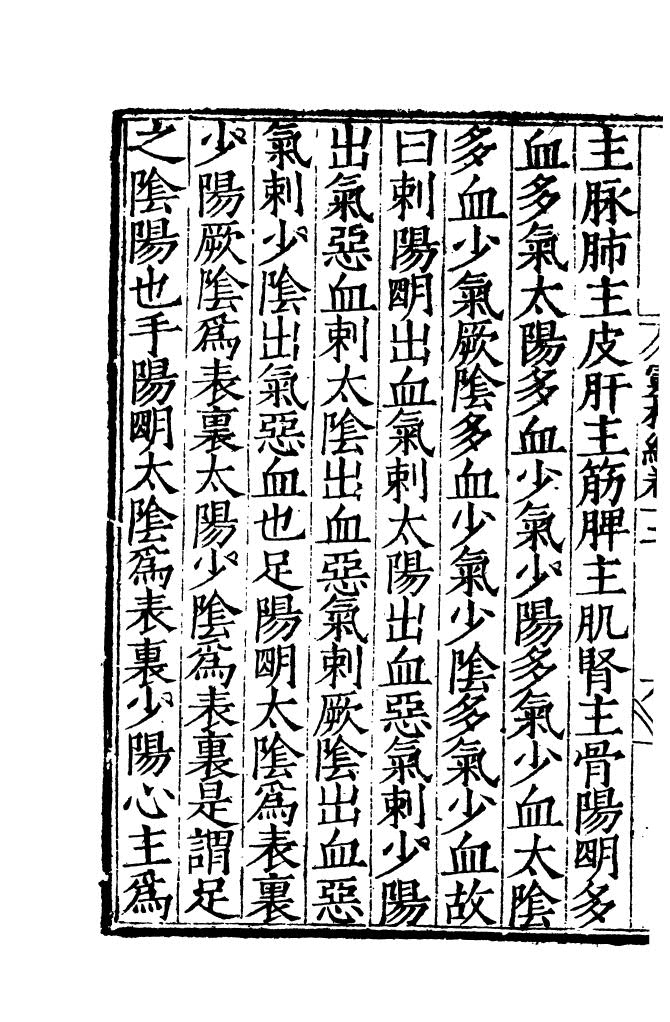 主脉肺主皮肝主筋脾主肌腎主骨陽明多
血多氣太陽多血少氣少陽多氣少血太陰
多血少氣厥陰多血少氣少陰多氣少血故
曰刺陽明出血氣刺太陽出血惡氣刺少陽
出氣惡血刺太陰出血惡氣刺厥陰出血惡
氣刺少陰出氣惡血也足陽明太陰爲表裏
少陽厥陰爲表裏太陽少陰爲表裏是謂足
之陰陽也手陽明太陰爲表裏少陽心主爲